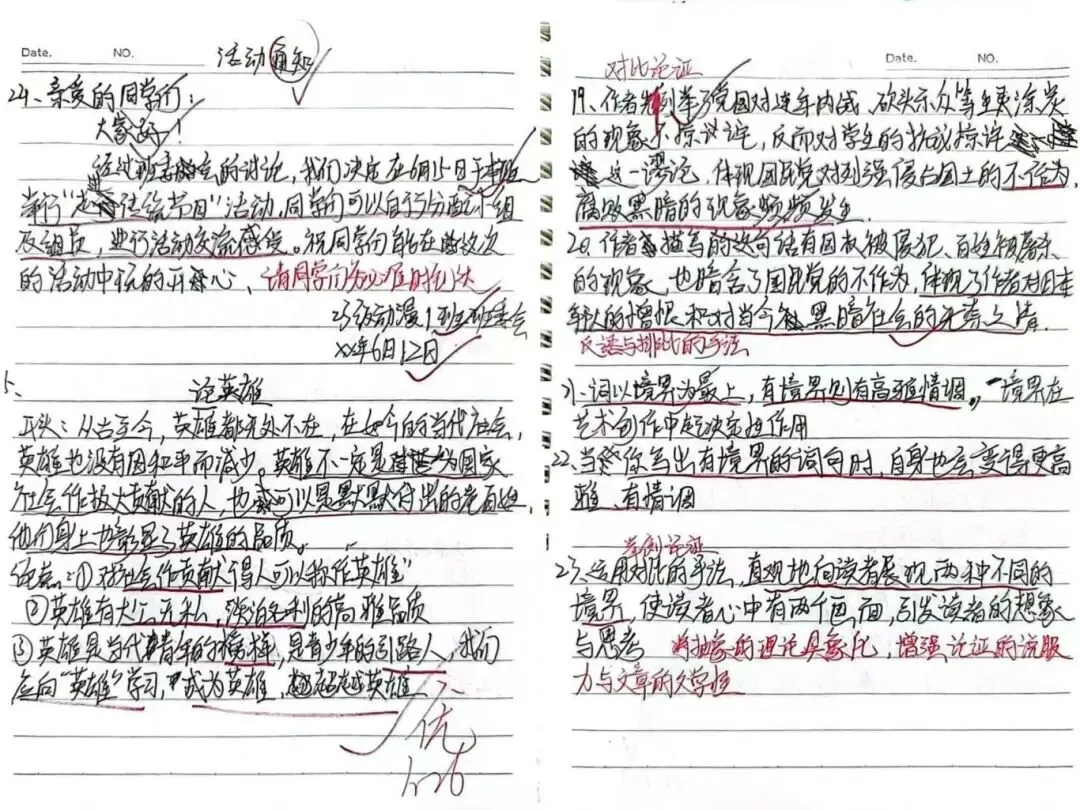 Date. NO.
活动通知
24、亲爱的同学们:
大家好!
经过班委的讨论,我们决定在6月15日于本班
举行“传统节日”活动,同学们可以自行分配小组
及组员,进行活动交流感受。祝同学们能在这次
的活动中玩的开心、请同学们务必准时到达
23级动漫1班班委会
xx年6月12日
论英雄
开头:从古至今,英雄都无处不在,在如今的当代社会,
英雄也没有因和平而减少。英雄不一定是为国家
社会作极大贡献的人,也可以是默默付出的老百姓,
他们身上也彰显了英雄的品质。
论点:①对社会作贡献得人可以称作英雄”
②英雄有大公无私,淡泊名利的高雅品质
③英雄是当代青年的榜样,是青少年的引路人,我们
应向“英雄”学习,成为英雄,超越英雄
优
Date. NO.
对比论证
19、作者先列举了党国对连年内战、砍头示众等生灵涂炭
的现象不惊诧,反而对学生的抗议惊诧
这一谬论,体现国民党对列强侵占国土的不作为,
腐败黑暗的现象频频发生.
20、作者描写的这句话有因权被侵犯、百姓被屠杀
的现象,也暗含了国民党的不作为,体现了作者对日本
军人的憎恨和对当今黑暗社会的
反语与排比的手法
21、词以境界为最上,有境界则有高雅情调。境界在
艺术创作中起决定性作用
22、当你写出有境界的词句时,自身也会变得更高
雅、有情调
举例论证
23、运用对比的手法,直观地向读者展现两种不同的
境界,使读者心中有两个画面,引发读者的想象
与思考 将抽象的理论具象化,增强论证的说服
力与文章的文学性